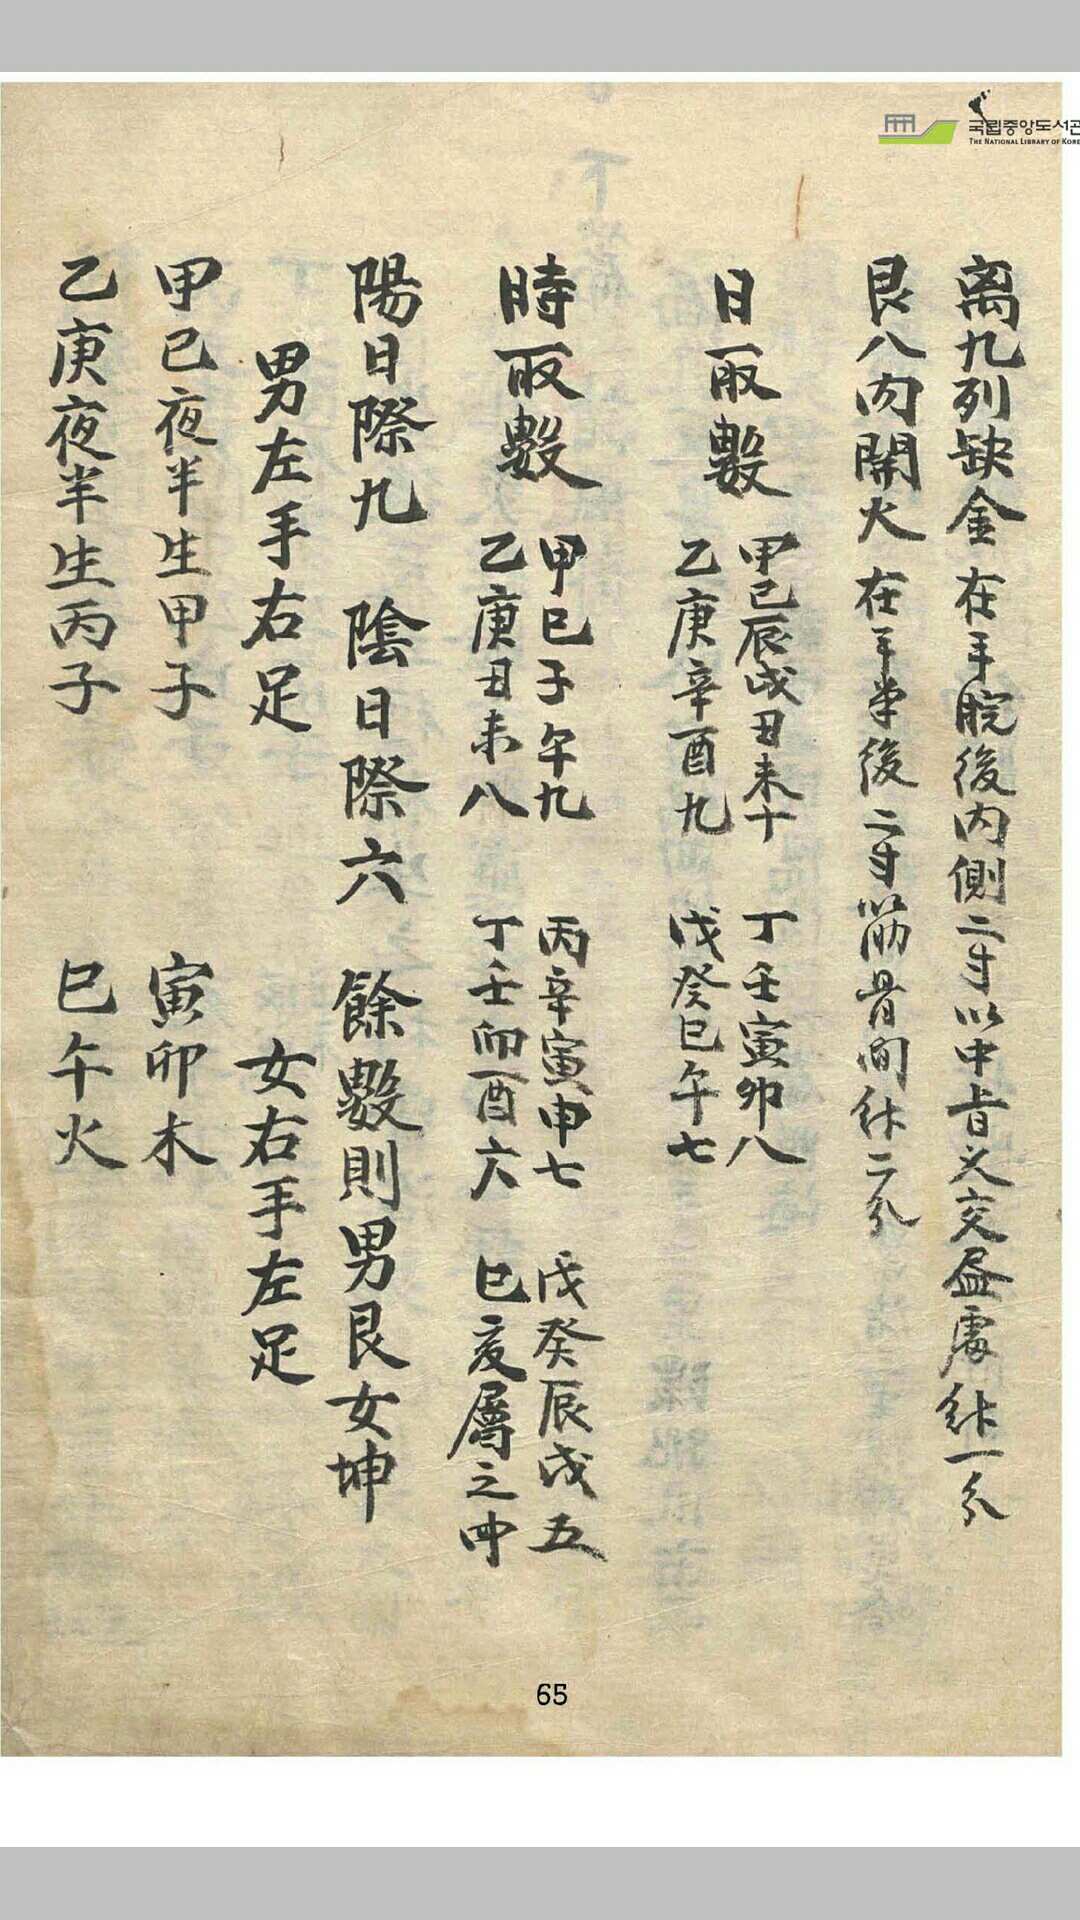 국립중앙도서관
THE NATIONAL LIBRARY OF KORE
离九列缺金 在手腕後内側二寸以中指叉交盡處 針一分
艮八内關火 在手掌後二寸筋骨间 針二分
日取數
甲己辰戌丑未十 丁壬寅卯八
乙庚辛酉九 戊癸巳午七
時取數
甲己子午九 丙辛寅申七 戊癸辰戌五
乙庚丑未八 丁壬卯酉六 巳亥屬之四
陽日除九 陰日除六 餘數則男艮女坤
男左手右足 女右手左足
甲己夜半生甲子 寅卯木
乙庚夜半生丙子 巳午火
65